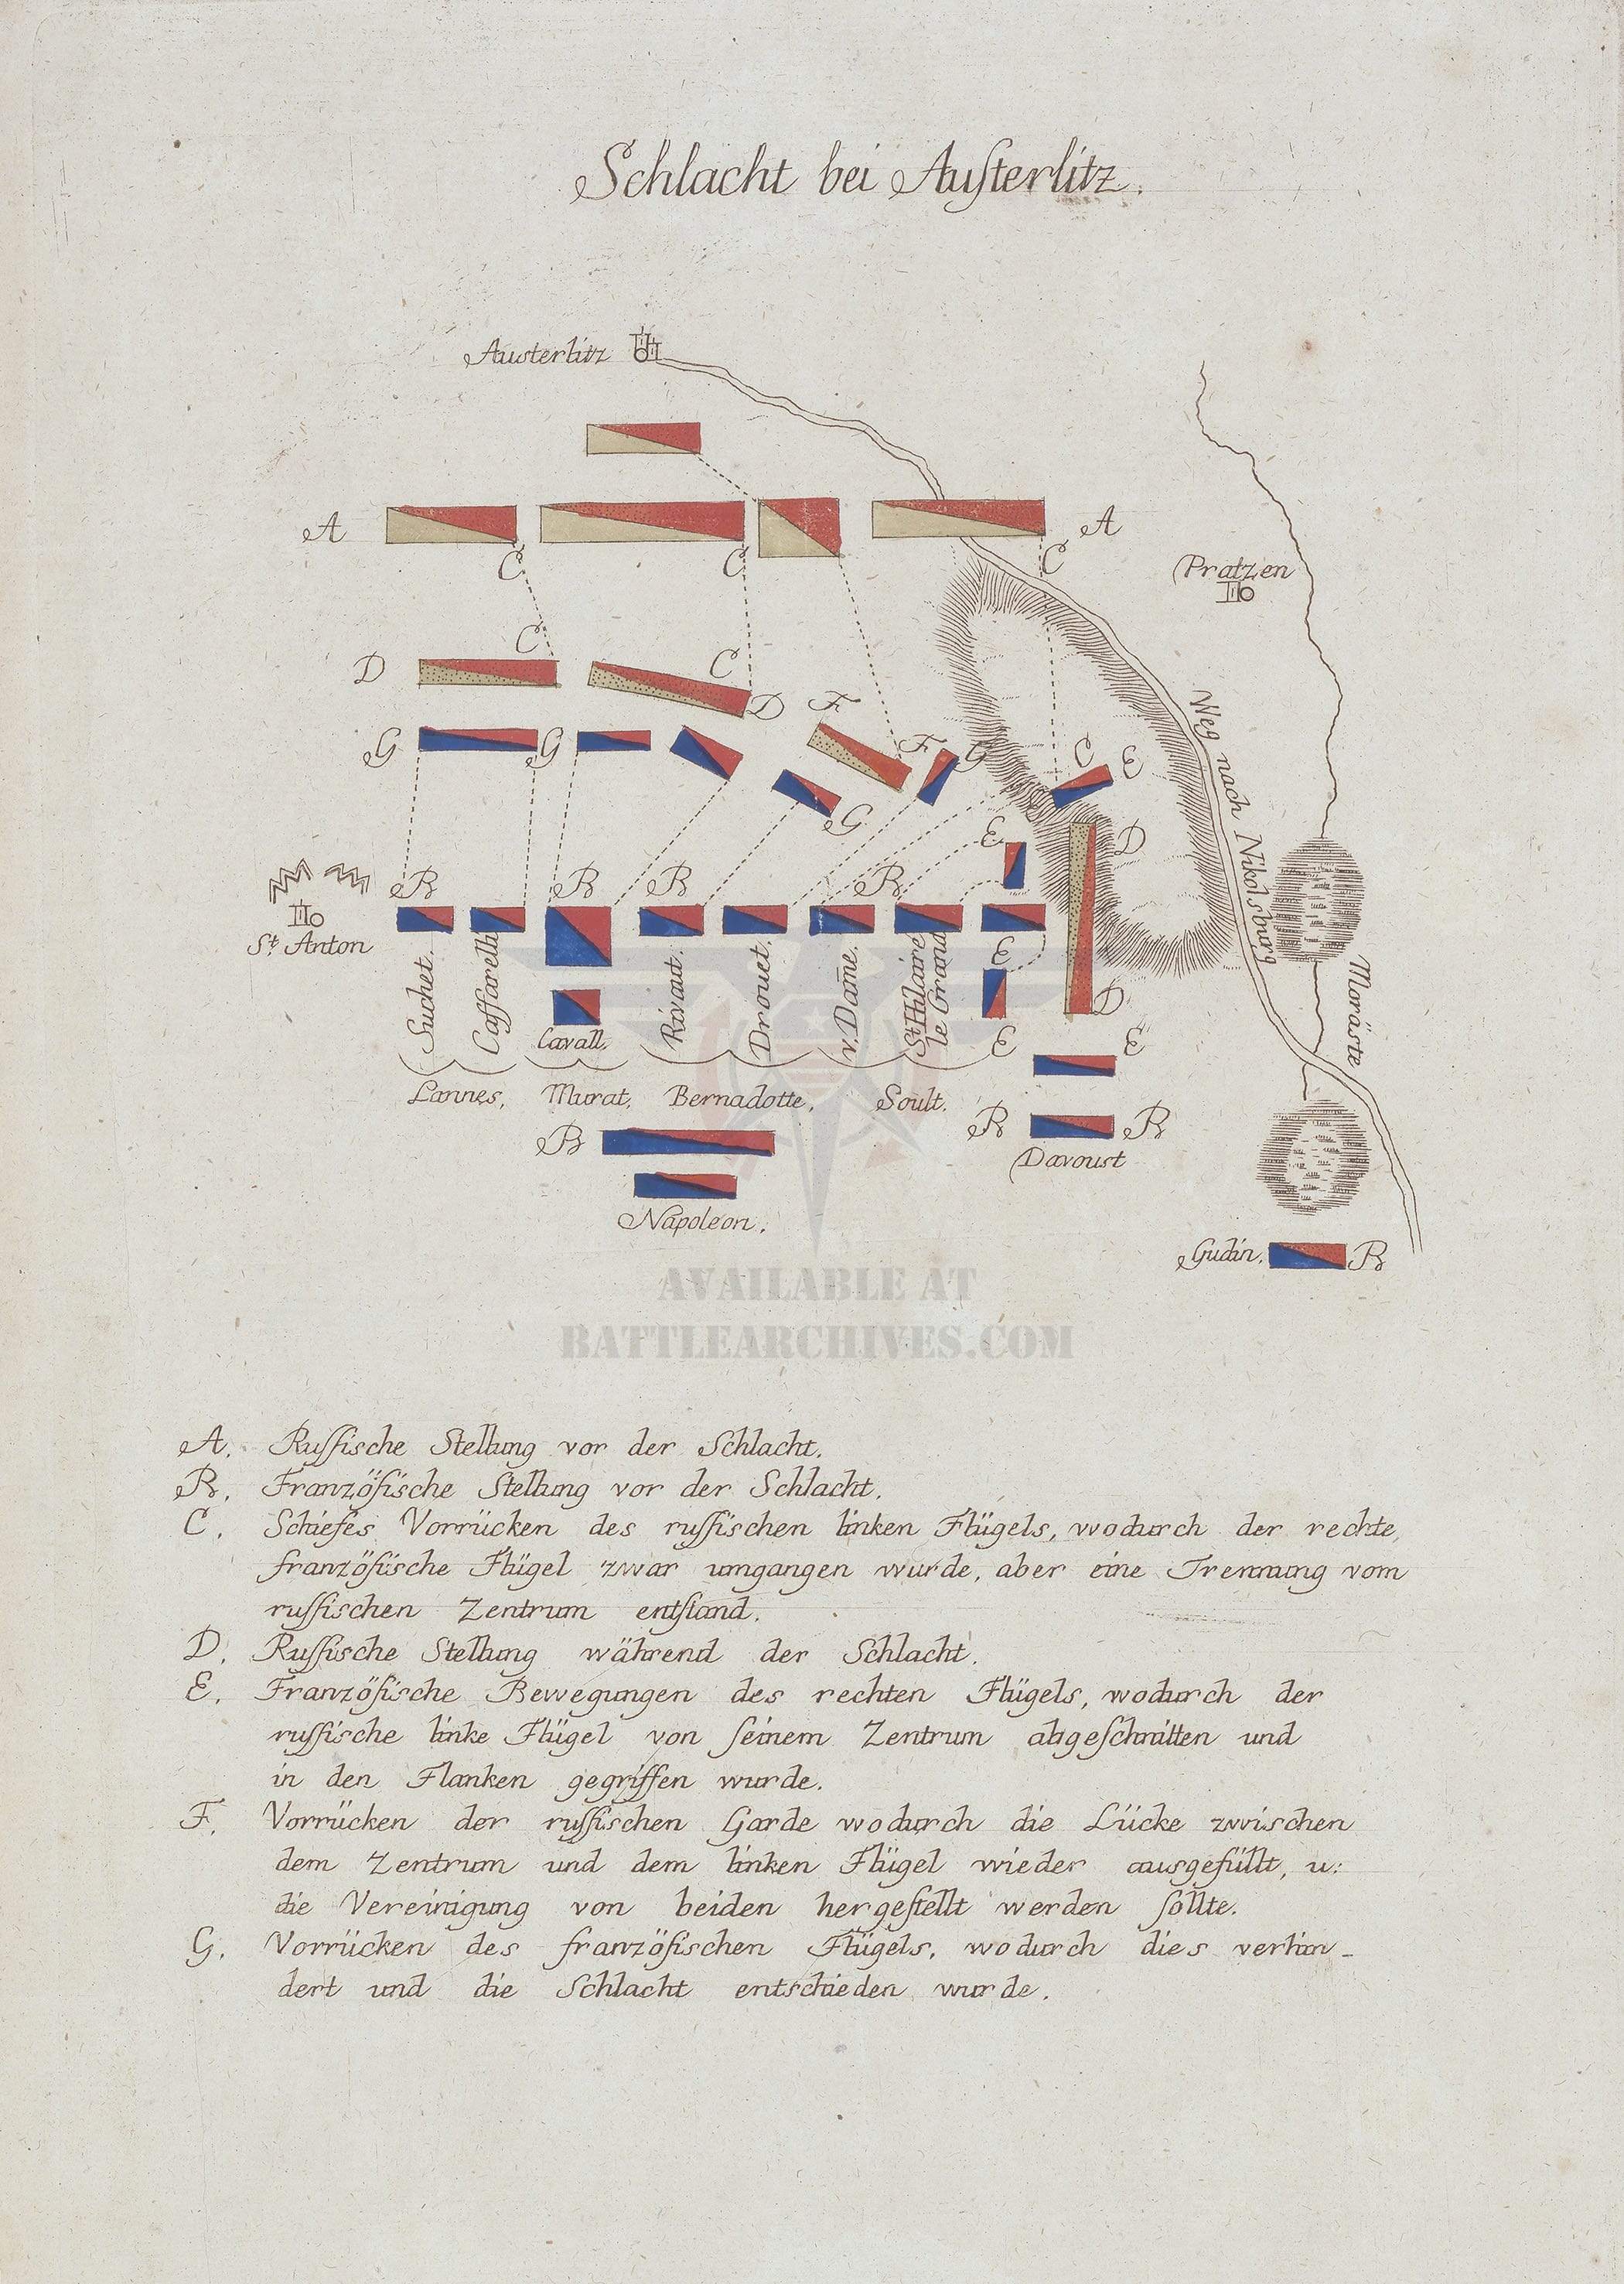 Schlacht bei Auſterlitz.
Austerlitz
A
A
C
C
C
Pratzen
C
C
D
D
F
F
G
G
G
G
C
E
Weg nach Nikolsburg
E
D
B
B
B
B
St. Anton
Suchet.
Caffarelli
Cavall.
Rivaut.
Drouet.
v. Dam̄e.
St Hilaire
le Grand
E
D
E
E
Moräste
Lannes,
Murat,
Bernadotte,
Soult.
B
B
B
Davoust
Napoleon.
Gudin.
B
AVAILABLE AT
BATTLEARCHIVES.COM
A. Ruſſische Stellung vor der Schlacht.
B. Franzöſische Stellung vor der Schlacht.
C. Schiefes Vorrücken des ruſſischen linken Flügels, wodurch der rechte,
franzöſische Flügel zwar umgangen wurde, aber eine Trennung vom
ruſſischen Zentrum entſtand.
D. Ruſſische Stellung während der Schlacht.
E. Franzöſische Bewegungen des rechten Flügels, wodurch der
ruſſische linke Flügel von ſeinem Zentrum abgeſchnitten und
in den Flanken gegriffen wurde.
F. Vorrücken der ruſſischen Garde wodurch die Lücke zwischen
dem Zentrum und dem linken Flügel wieder ausgefüllt, u:
die Vereinigung von beiden hergeſtellt werden ſollte.
G. Vorrücken des franzöſischen Flügels, wodurch dies verhin-
dert und die Schlacht entschieden wurde.